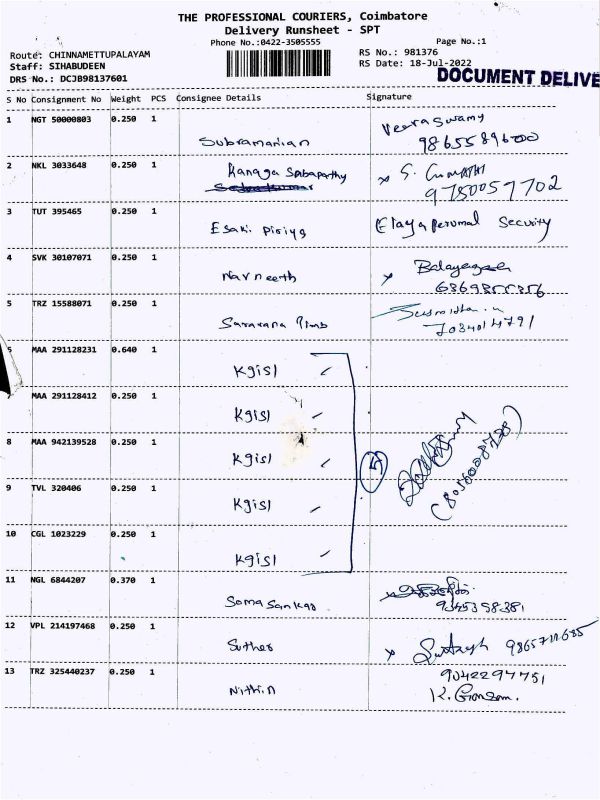 THE PROFESSIONAL COURIERS, Coimbatore
Delivery Runsheet - SPT
Phone No.:0422-3505555
Page No.:1
Route: CHINNAMETTUPALAYAM
RS No.: 981376
Staff: SIHABUDEEN
RS Date: 18-Jul-2022
DRS No.: DCJB98137601
DOCUMENT DELIVE
S No Consignment No Weight PCS Consignee Details Signature
1 NGT 50000803 0.250 1 Subramanian Veeraswamy
2 NKL 3033648 0.250 1 Kanaga Sabapathy
9780057702
3 TUT 395465 0.250 1 Esaki piriya Elayaperumal Security
4 SVK 30107071 0.250 1 Navneeth
5 TRZ 15588071 0.250 1 Saravana
6 MAA 291128231 0.640 1 Kgisl
7 MAA 291128412 0.250 1 Kgisl
8 MAA 942139528 0.250 1 Kgisl
5
9 TVL 320406 0.250 1 Kgisl
10 CGL 1023229 0.250 1 Kgisl
11 NGL 6844207 0.370 1 Soma Sankar
12 VPL 214197468 0.250 1
13 TRZ 325440237 0.250 1 Nithin 9042297751